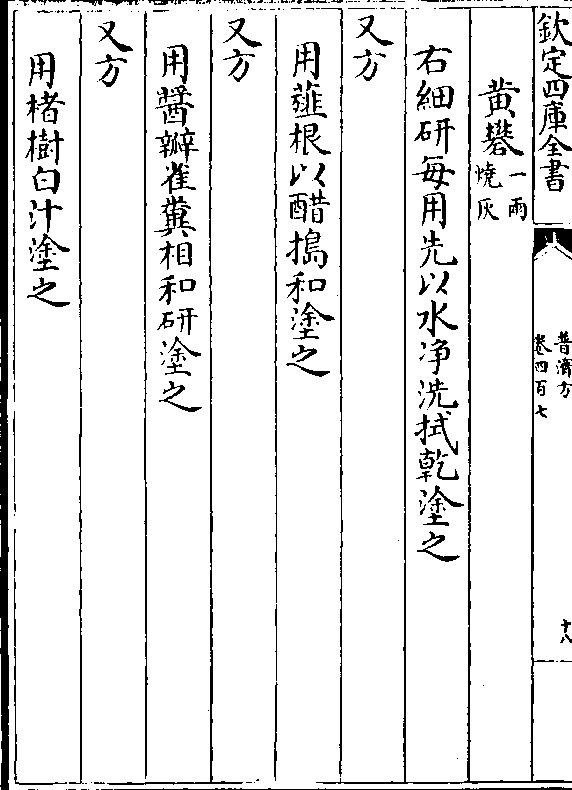 欽定四庫全書
普濟方
卷四百七
十八
黄礬一兩燒灰
右細研每用先以水净洗拭乾塗之
又方
用薤根以醋搗和塗之
又方
用醬瓣雀糞相和研塗之
又方
用楮樹白汁塗之